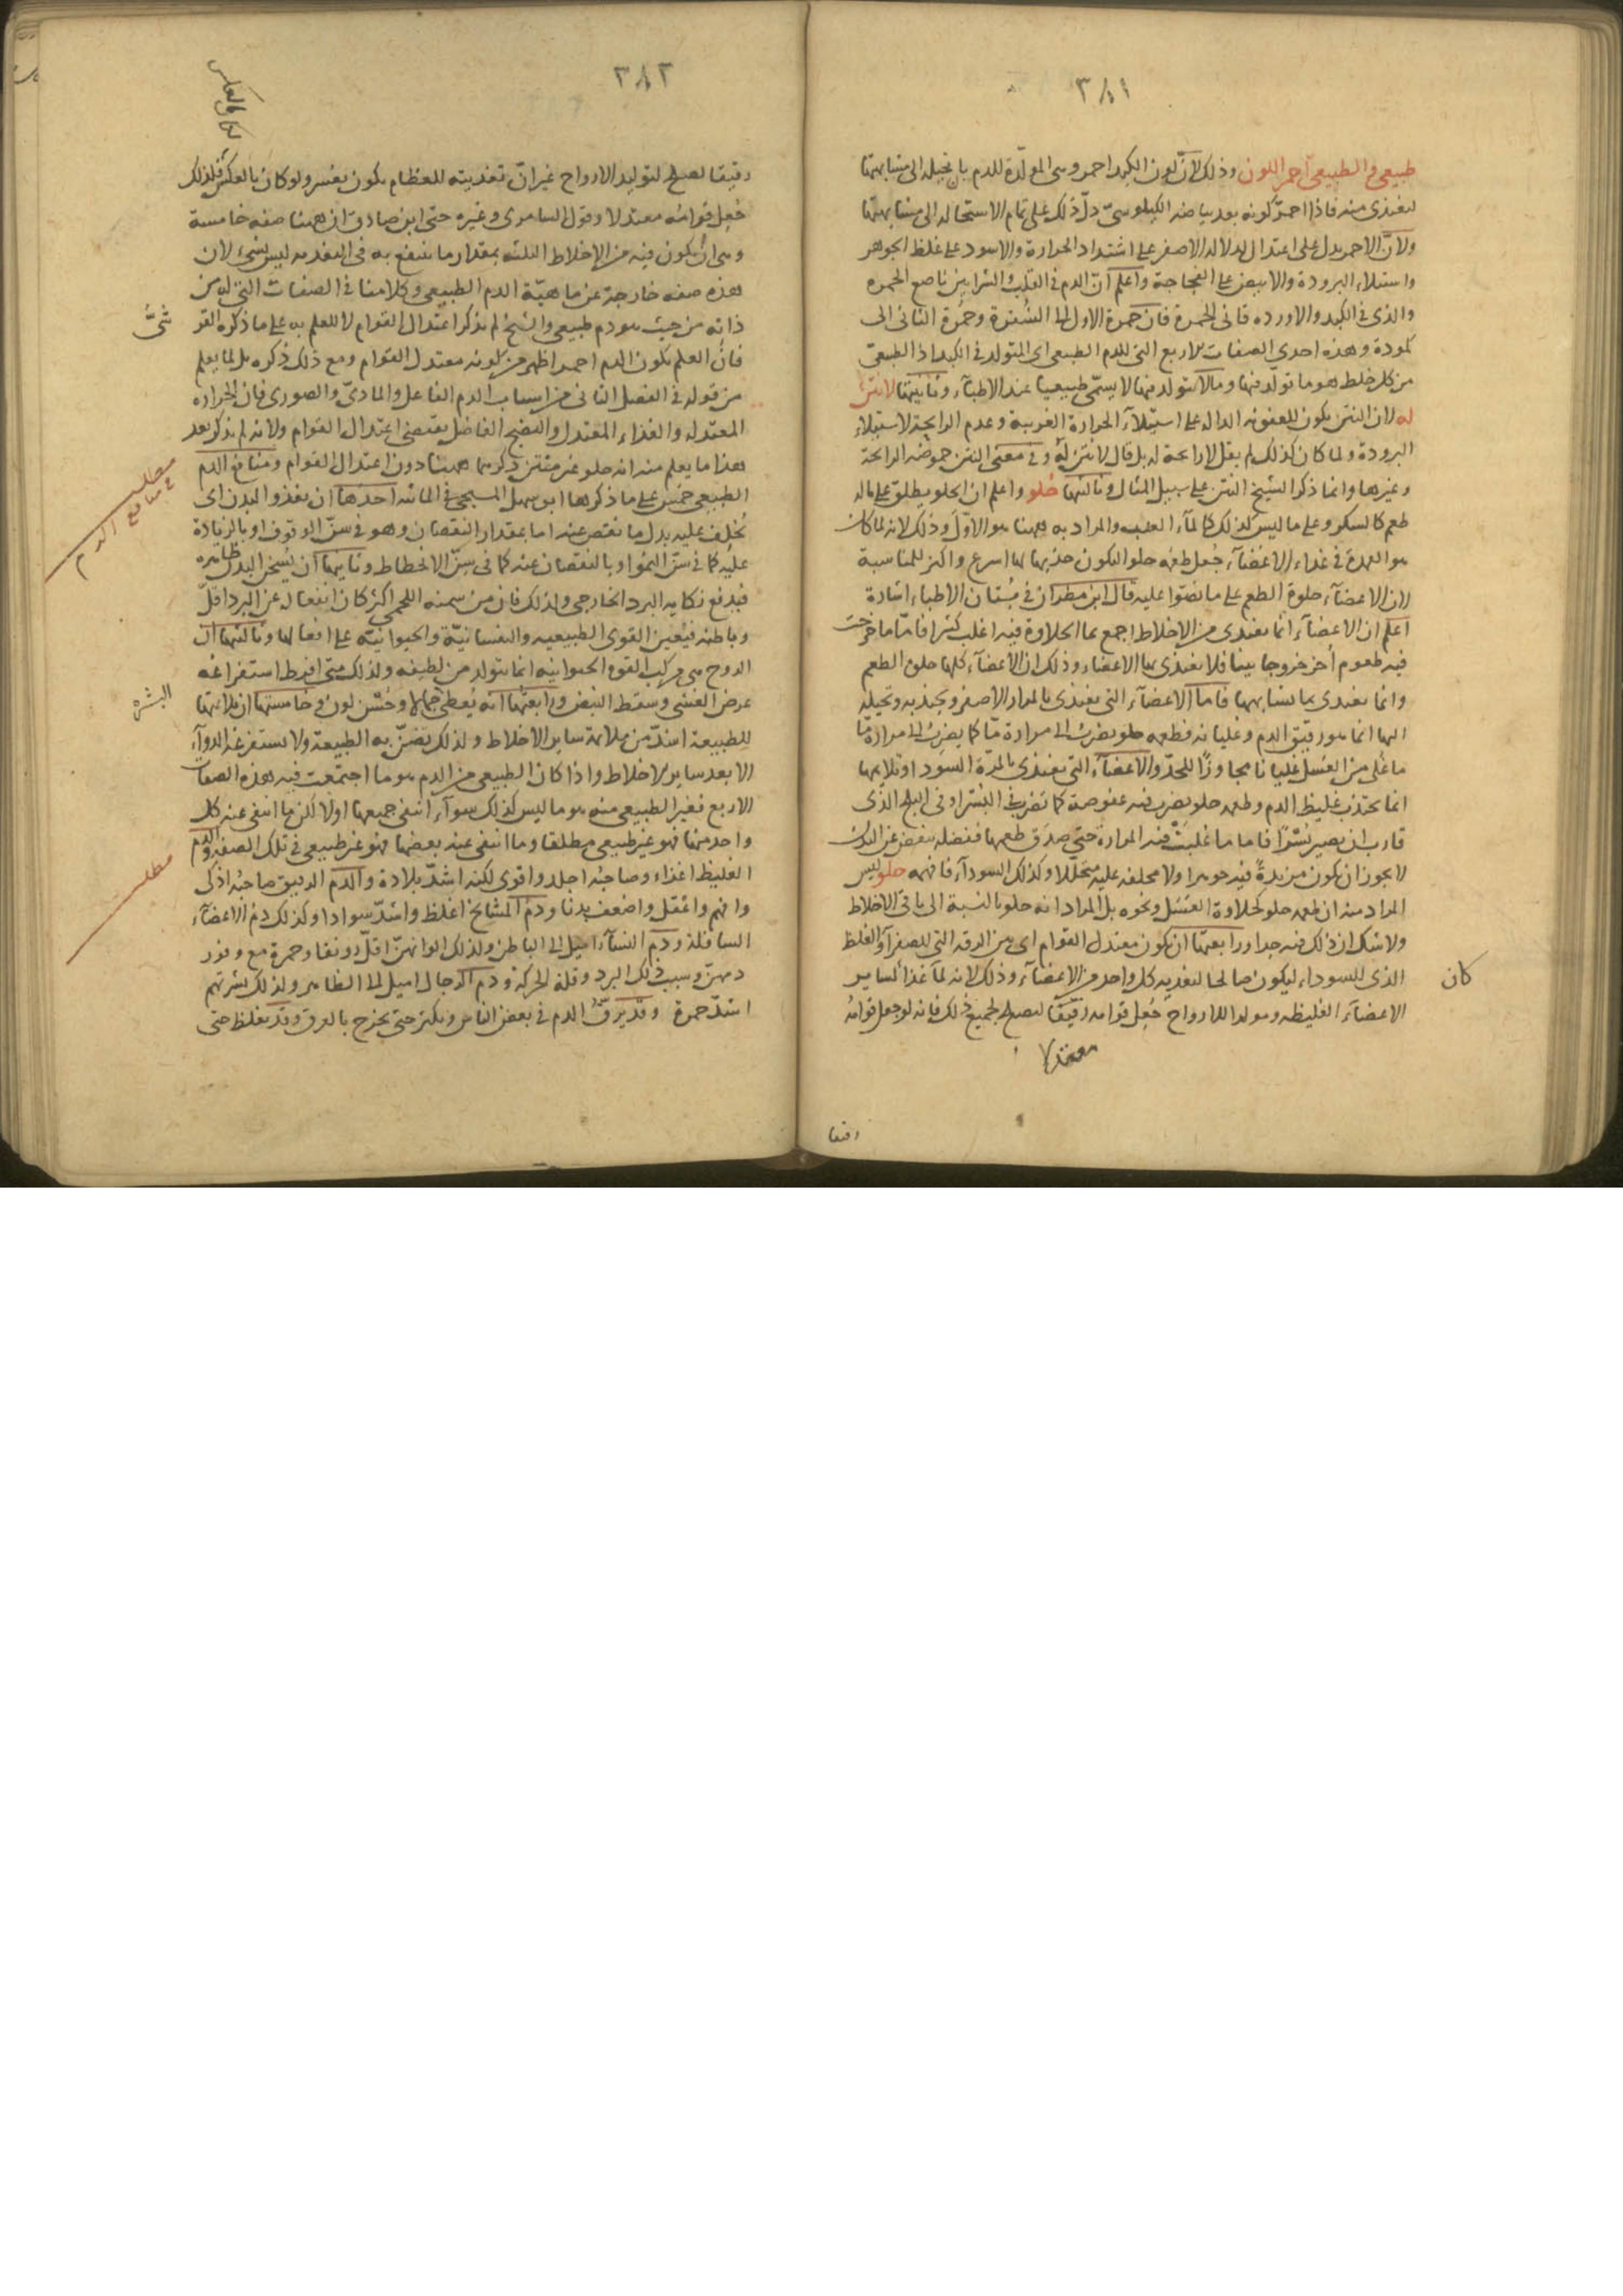 ٣٨١
طبيعي والطبيعي احمر اللون وذلك لان لون الكبد احمر وهي المولدة للدم بان تحيله الى مشابهتها
لتغتذي منه فاذا احمر كونه بعد بياضه الكيلوسي دل ذلك على تمام الاستحالة الى مشابهتها
ولان الاحمر يدل على اعتدال لدلالة الاصفر على اشتداد الحرارة والاسود على غلظ الجوهر
واستيلاء البرودة والابيض على الفجاجة واعلم ان الدم في القلب والشرايين ناصع الحمرة
والذي في الكبد والاوردة قاني الحمرة فان حمرة الاول الى الشقرة وحمرة الثاني الى
كمودة وهذه احدى الصفات الاربع التي للدم الطبيعي اي المتولد في الكبد اذ الطبيعي
من كل خلط هو ما تولد فيها وما لا يتولد فيها لا يسمى طبيعيا عند الاطباء وثانيتها لا نتن
له لان النتن يكون للعفونة الدالة على استيلاء الحرارة الغريبة وعدم الرايحة لاستيلاء
البرودة ولما كان كذلك لم يقل لا رايحة له بل قال لا نتن له وفي معنى النتن حموضة الرايحة
وغيرها وانما ذكر الشيخ النتن على سبيل المثال وثالثتها حلو واعلم ان الحلو يطلق على ما له
طعم كالسكر وعلى ما ليس كذلك كالماء العذب والمراد به ههنا هو الاول وذلك لانه لما كان
هو العمدة في غذاء الاعضاء جعل طعمه حلو اليكون جذبها لها اسرع واكثر للمناسبة
لان الاعضاء حلوة الطعم على ما نصوا عليه قال ابن مطران في بستان الاطباء اشارة
اعلم ان الاعضاء انما تغتذي من الاخلاط اجمع بما الحلاوة فيه اغلب كثيرا فاما ما خرجت
فيه طعوم أخر خروجا بينا فلا تغتذي بها الاعضاء وذلك ان الاعضاء كلها حلوة الطعم
وانما تغتذي بما يشابهها فاما الاعضاء التي تغتذي بالمرار الاصفر وتجذبه وتحيله
اليها انما هو رقيق الدم وغليانه فطعمه حلو يضرب الى مرارة ما كما يضرب الى مرارة ما
ما غلى من العسل غليانا مجاوزا للحد والاعضاء التي تغتذي بالمرة السوداء وتلايمها
انما تجتذب غليظ الدم وطعمه حلو يضرب فيه عفوصة كما تضرب في البسر او في البلح الذي
قارب ان يصير بسرا فاما ما غلبت فيه المرارة حتى صدق طعمها ففضله ينفض عن البدن
لا يجوز ان يكون مزيدة فيه جوهرا ولا مخلفة عليه متحللا وكذلك السوداء فافهمه حلو ليس
المراد منه ان طعمه حلو كحلاوة العسل ونحوه بل المراد انه حلو بالنسبة الى باقي الاخلاط
ولا شك ان ذلك فيه جدا ورابعتها ان يكون معتدل القوام اي بين الرقة التي للصفراء والغلظ
الذي للسوداء ليكون صالحا لتغذية كل واحد من الاعضاء وذلك لانه لما غذاء لساير
كان
الاعضاء الغليظة ومولدا للارواح جعل قوامه رقيقا ليصلح لجميع ذلك فانه لو جعل قوامه
معتدلا
رقيقا
٣٨٢
رقيقا لصلح لتوليد الارواح غير ان تغذيته للعظام يكون بعسر ولو كان بالعكس فلذلك
جعل قوامه معتدلا وقول السامري وغيره حتى ابن صادق ان ههنا صفة خامسة
وهي ان يكون فيه من الاخلاط الثلثة بمقدار ما ينتفع به في التغذية ليس بشيء لان
هذه صفة خارجة عن ماهية الدم الطبيعي وكلامنا في الصفات التي له من
ذاته من حيث هو دم طبيعي والشيخ لم يذكر اعتدال القوام لا للعلم به على ما ذكره القر
شي
فان العلم بكون الدم احمر اظهر من كونه معتدل القوام ومع ذلك ذكره بل لما يعلم
من قوله في الفصل الثاني من اسباب الدم الفاعل والمادي والصوري فان الحرارة
المعتدلة والغذاء المعتدل والنضج الفاضل يقتضي اعتدال القوام ولانه لم يذكر بعد
هذا ما يعلم منه انه حلو غير منتن ذكرهما ههنا دون اعتدال القوام ومنافع الدم
مطلب في منافع الدم
الطبيعي خمس على ما ذكرها ابو سهل المسيحي في المائة احدها ان يغذو البدن اي
يخلف عليه بدل ما نقص عنه اما بمقدار النقصان وهو في سن الوقوف او بالزيادة
عليه كما في سن النمو او بالنقصان عنه كما في سن الانحطاط وثانيها ان يسخن البدن ظاهره
فيدفع نكاية البرد الخارجي ولذلك فان من سمنه اللحمي اكثر كان انفعاله عن البرد اقل
وباطنه فيعين القوى الطبيعية والنفسانية والحيوانية على افعالها وثالثتها ان
الروح هي مركب القوة الحيوانية انما يتولد من لطيفه ولذلك متى افرط استفراغه
عرض الغشي وسقط النبض ورابعتها انه يعطي جمالا وحسن لون وخامستها ان ملايمتها
البشرة
للطبيعة اشد من ملايمة ساير الاخلاط ولذلك تضن به الطبيعة ولا يستفرغه الدواء
الا بعد ساير الاخلاط واذا كان الطبيعي من الدم هو ما اجتمعت فيه هذه الصفات
الاربع فغير الطبيعي منه هو ما ليس كذلك سواء انتفى جميعها او لا لكن ما انتفى عنه كل
واحد منها فهو غير طبيعي مطلقا وما انتفى عنه بعضها فهو غير طبيعي في تلك الصفة والدم
مطلب
الغليظ اغذاء وصاحبه اجلد واقوى لكنه اشد بلادة والدم الرقيق صاحبه اذكى
وافهم واعقل واضعف بدنا ودم المشايخ اغلظ واشد سوادا وكذلك دم الاعضاء
السافلة ودم النساء اميل الى الباطن ولذلك الوانهن اقل رونقا وحمرة مع وفور
دمهن وسبب ذلك البرد وقلة الحركة ودم الرجال اميل الى الظاهر ولذلك بشرتهم
اشد حمرة وقد يرق الدم في بعض الناس ويكثر حتى يخرج بالعرق وقد يغلظ حتى